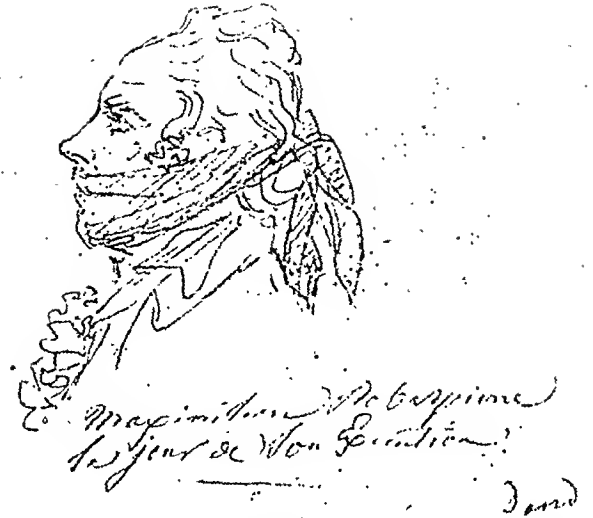 Maximilien Robespierre
le jour de Son Exécution.
David